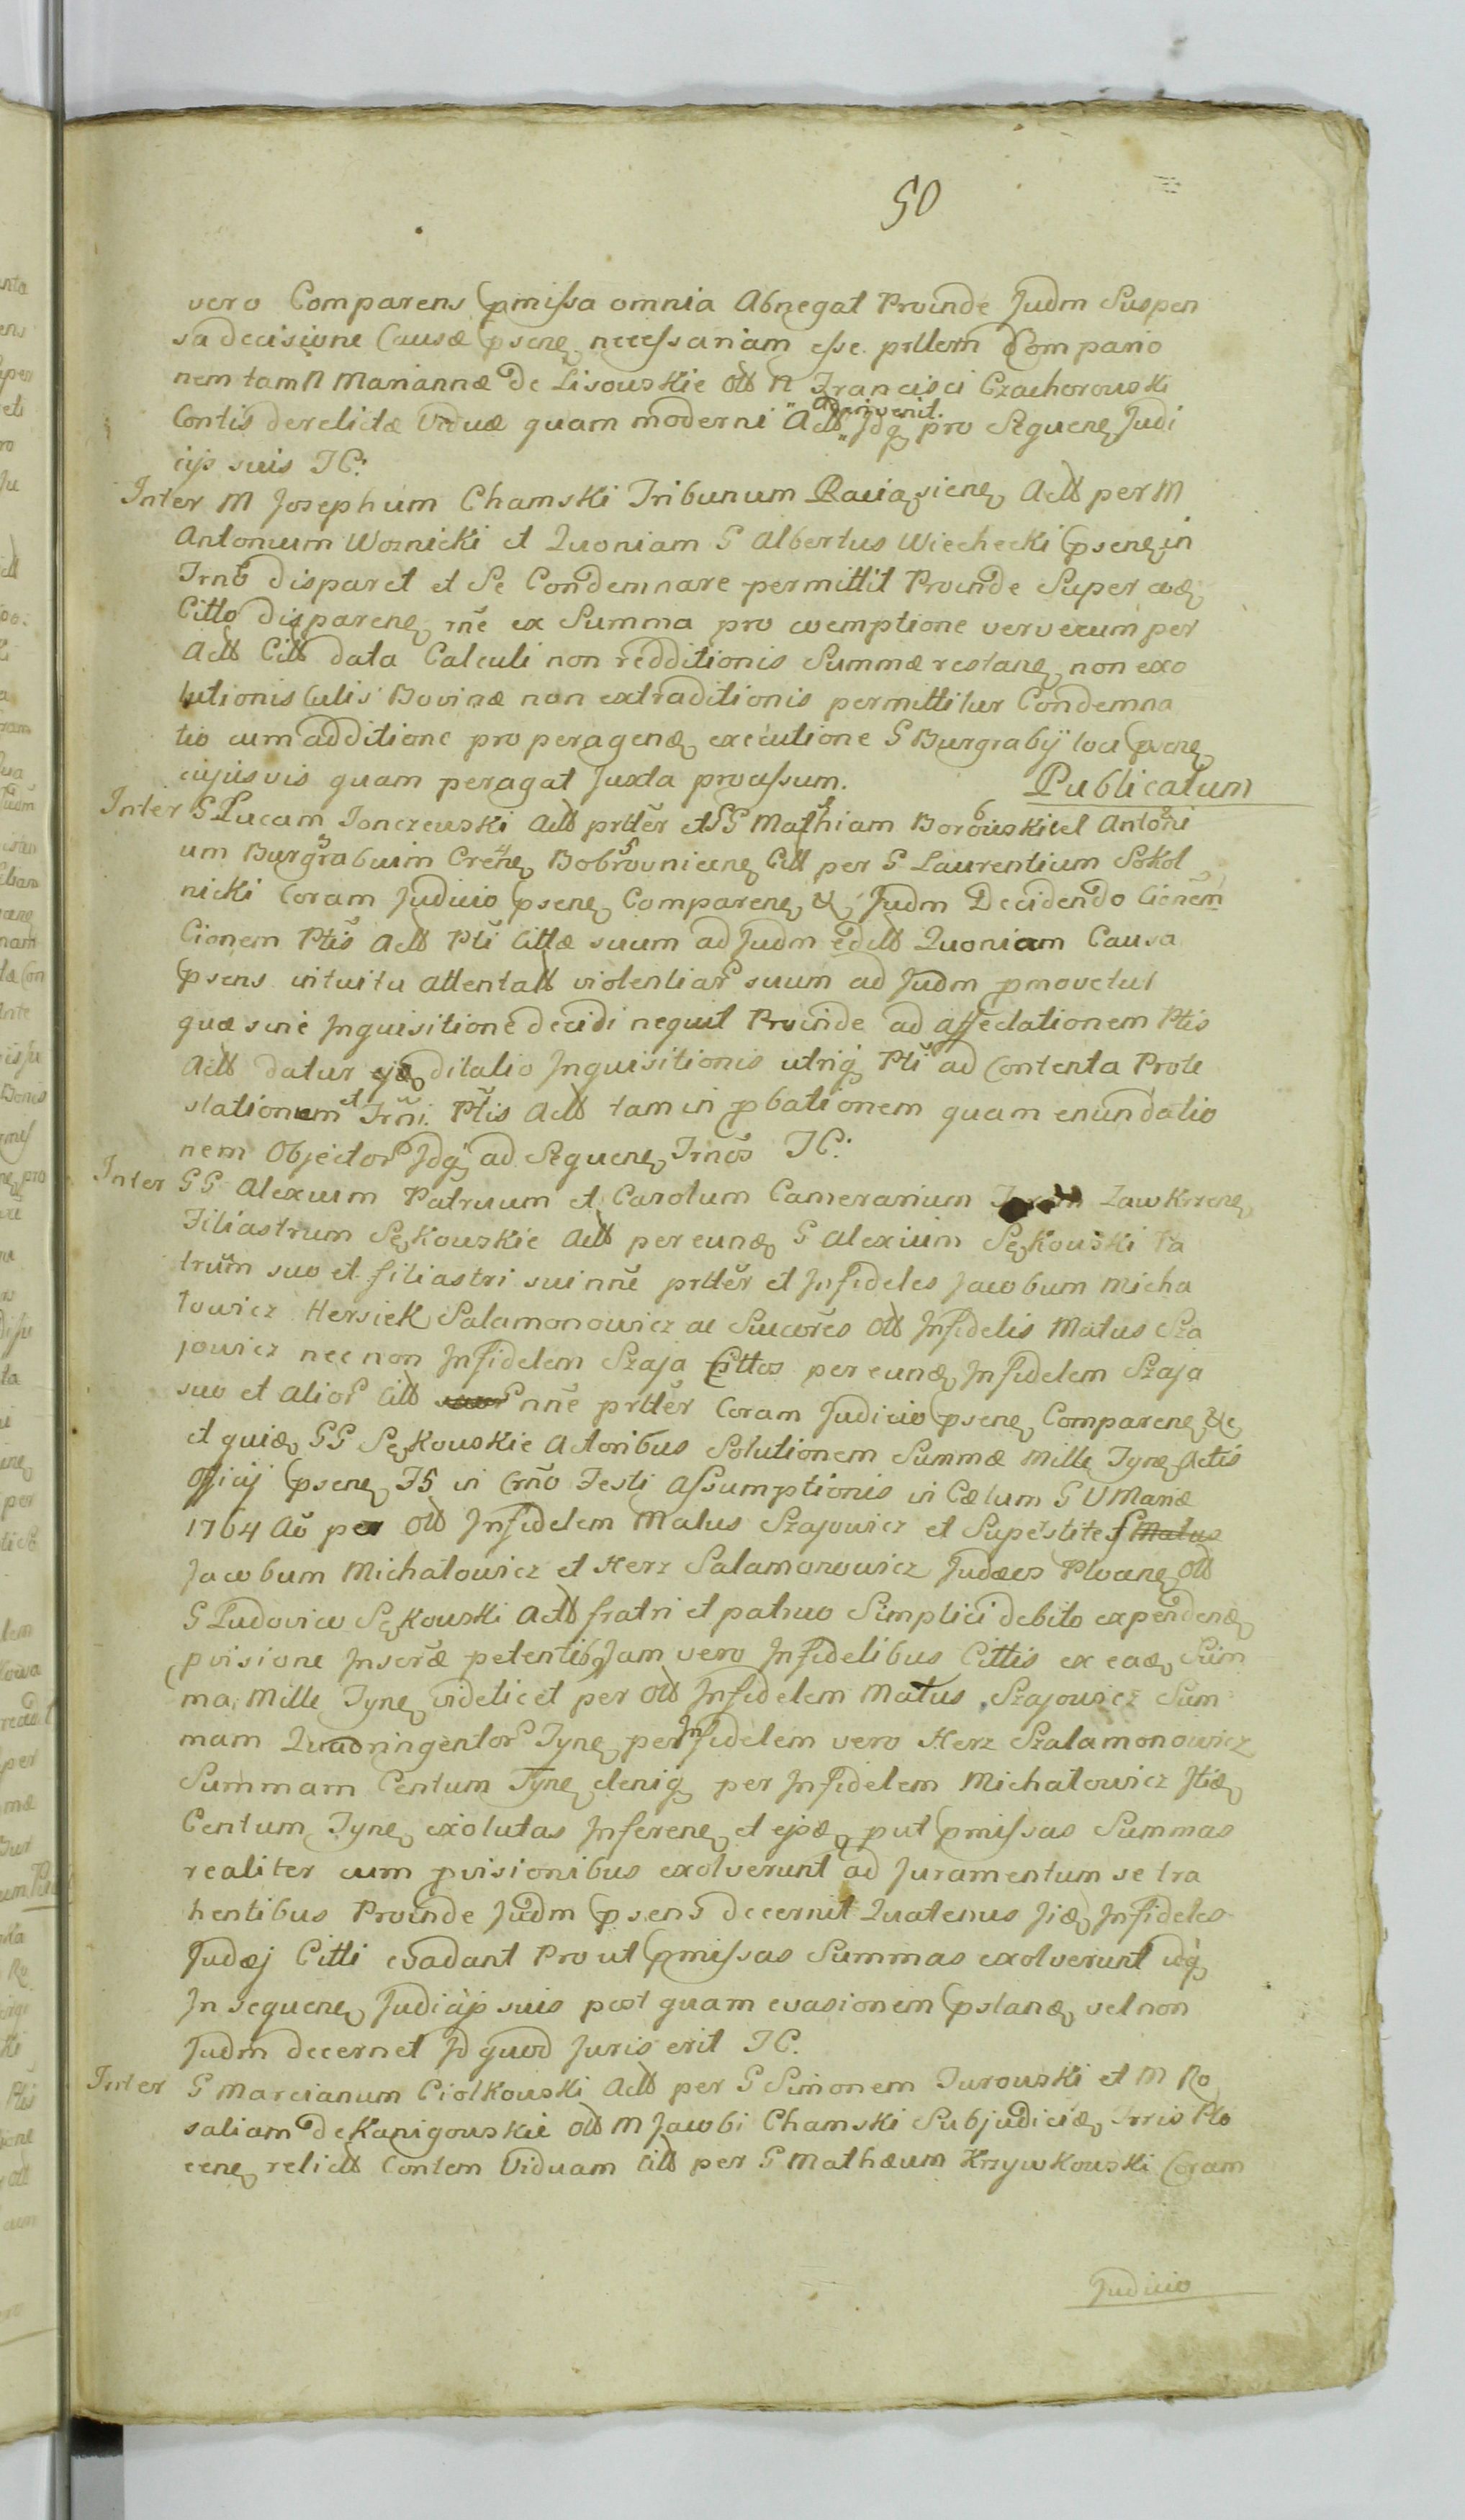 50
vero Comparens pmissa omnia Abnegat Proinde Judm Suspen
sa decisione Causæ psene necessariam esse prllem Compario
nem tam N Mariannæ De Lisowskie Olt N Francisci Czachorowski
adjnvenit.
Contis derelictæ Viduæ quam moderni Actt Jdq pro Sequene Judi
cijs suis TC:
Inter M Josephum Chamski Tribunum Raviasiene Actt per M
Antonium Woznicki et Quoniam G Albertus Wiechecki psene in
Trno disparet et Se Condemnare permittit Proinde Super eod
Citto disparene rne ex Summa pro coemptione vervecum per
Actt Citt data Calculi non redditionis Summæ restane non exo
lutionis Cutis Bovinæ non extraditionis permittitur Condemna
tio cum additione pro peragend executione G Burgrabij loci psene
cujusvis quam peragat Juxta processum. Publicatum
Inter G Lucam Jonczewski Actt prtter et GG Mathiam Borowski et Antoni
um Burgrabium Crene Bobrovnicene Citt per G Laurentium Sokol
nicki Coram Judicio psene Comparene & Judm Decidendo Cienem
Cionem Ptis Actt Pti Cittæ suum ad Judm edctt Quoniam Causa
psens intuitu attentatt violentiar suum ad Judm pmovetur
quæ sine Jnquisitione decidi nequit Proinde ad affectationem Ptis
Actt datur expditatio Jnquisitionis utriq Pti ad Contenta Prote
stationum et Trni. Ptis Actt tam in pbationem quam enundatio
nem Objector Jdq ad Sequene Trnos TC:
Inter GG Alexium Patruum et Carolum Camerarium Zawkrzene
Filiastrum Sękowskie Actt per eund G Alexium Sękowski Pa
trum suo et filiastri sui nne prtter et Jnfideles Jacobum Micha
lowicz Hersiek Salamonowicz ac Succres Olt Jnfidelis Matus Sza
jowicz nec non Jnfidelem Szaja Cittos per eund Jnfidelem Szaja
suo et alior Citt nne prtter Coram Judicio psene Comparene &c
et quid GG Sękowskie Actoribus Solutionem Summæ Mille Tyne Actis
Officij psene TS in Crno Festi Assumptionis in Cælum G V Mariæ
1764 Ao per Olt Jnfidelem Matus Szajowicz et Superstites Matus
Jacobum Michalowicz et Herz Salamonowicz Judæos Plocene Olt
G Ludovico Sękowski Actt fratri et patruo Simplici debito expendend
pvisione Jnscræ petentibq Jam vero Jnfidelibus Cittis ex ead Sum
ma Mille Tyne videlicet per Olt Jnfidelem Matus Szajowicz Sum
mam Quadringentor Tyne per Jnfidelem vero Herz Szalamonowicz
Summam Centum Tyne deniq per Jnfidelem Michalowicz Jtid
Centum Tyne exolutas Jnferene et ejsd put pmissas Summas
realiter cum pvisionibus exolverunt ad Juramentum se tra
hentibus Proinde Judm psens decernit Quatenus Jid Jnfideles
Judæj Citti evadant Pro ut pmissas Summas exolverunt idq
Jn sequene Judicijs suis post quam evasionem pstand vel non
Judm decernet Jd quod Juris erit TC.
Inter G Marcianum Ciolkowski Actt per G Simonem Turowski et M Ro
saliam de Kanigowskie Olt M Jacobi Chamski Subjudicid Trris Plo
cene relictt Contem Viduam Citt per G Mathæum Krzywkowski Coram
Judicio